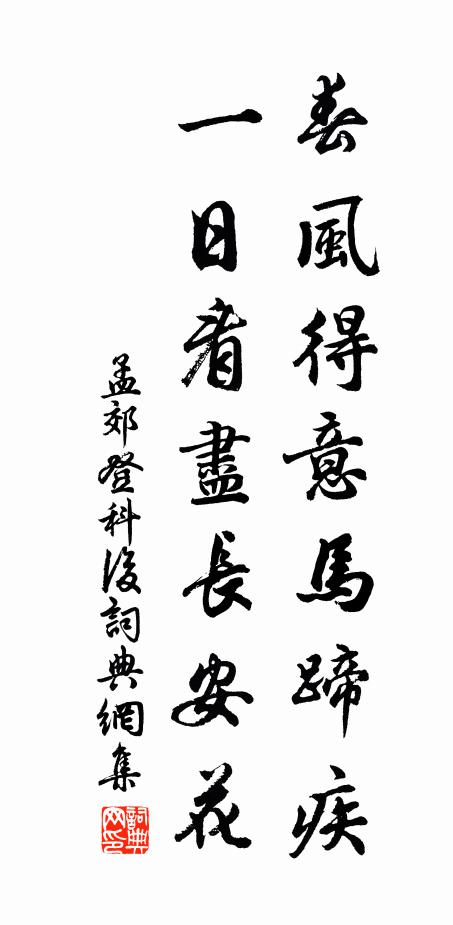 春風得意馬蹄疾
一日看盡長安花
孟郊登科後詞典網集
詞典
网印